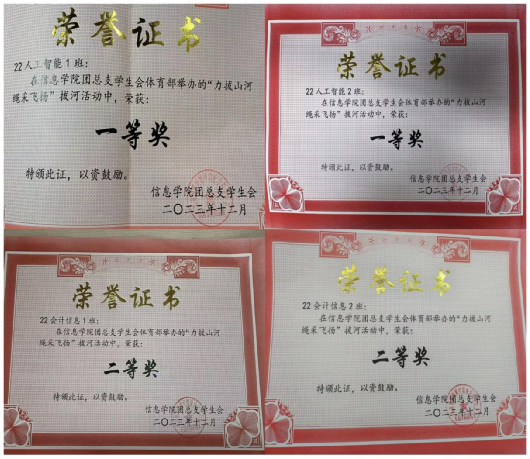 荣誉证书
22人工智能1班：
在信息学院团总支学生会体育部举办的“力拔山河
绳采飞扬”拔河活动中，荣获：
一等奖
特颁此证，以资鼓励。
信息学院团总支学生会
二〇二三年十二月
荣誉证书
22人工智能2班：
在信息学院团总支学生会体育部举办的“力拔山河
绳采飞扬”拔河活动中，荣获：
一等奖
特颁此证，以资鼓励。
信息学院团总支学生会
二〇二三年十二月
荣誉证书
22会计信息1班：
在信息学院团总支学生会体育部举办的“力拔山河
绳采飞扬”拔河活动中，荣获：
二等奖
特颁此证，以资鼓励。
信息学院团总支学生会
二〇二三年十二月
荣誉证书
22会计信息2班：
在信息学院团总支学生会体育部举办的“力拔山河
绳采飞扬”拔河活动中，荣获：
二等奖
特颁此证，以资鼓励。
信息学院团总支学生会
二〇二三年十二月